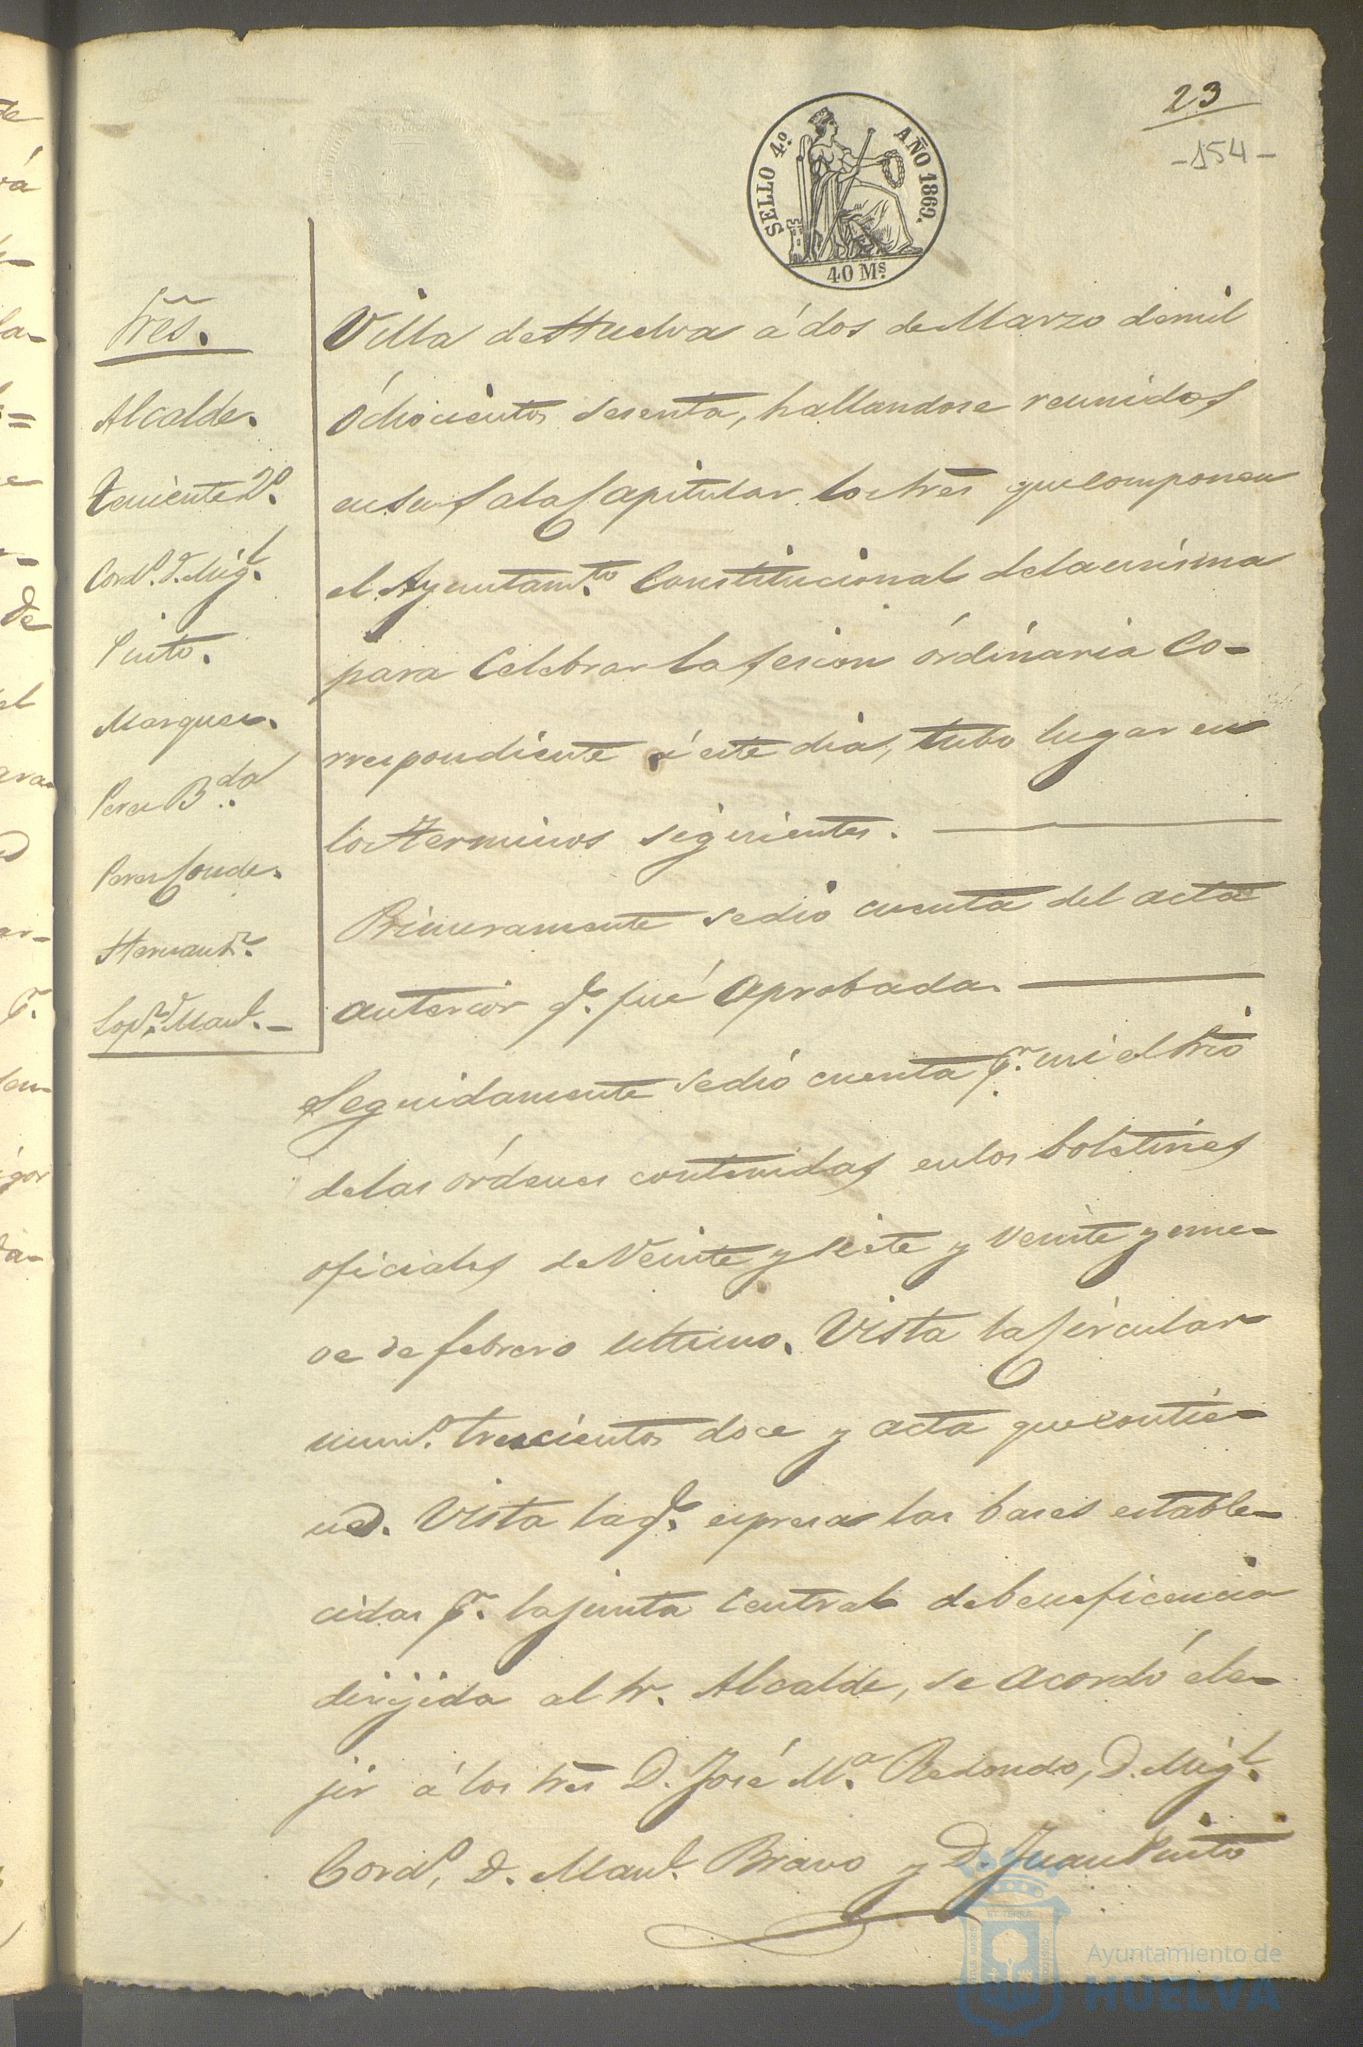 23
-154-
SELLO 4.º AÑO 1860.
40 Ms.
Sres.
Alcalde.
Teniente 2º.
Cordº. D. Migl.
Pinto.
Marquez.
Perez Bda.
Perez Conde.
Hernandz.
Lopz. D. Manl.
Villa de Huelva á dos de Marzo de mil
óchocientos sesenta, hallandose reunidos
en su Sala Capitular los Sres que componen
el Ayuntamto. Constitucional de la misma
para Celebrar la sesion órdinaria Co-
rrespondiente á este dia, tubo lugar en
los terminos siguientes.
Primeramente se dio cuenta del acta
anterior q. fué aprobada.
Seguidamente se dió cuenta pr. mi el Srio
de las órdenes contenidas en los boletines
oficiales de Veinte y siete y veinte y nue-
ve de febrero ultimo. Vista la Circular
numº. trescientos doce y acta que contie-
ne. Vista la q. espresa las bases estable-
cidas pr. la junta Central de beneficencia
dirijida al Sr. Alcalde, se acordó ele-
jir á los Sres D. José Mª. Redondo, D. Migl.
Cordº, D. Manl. Bravo y D. Juan Pinto
Ayuntamiento de
HUELVA